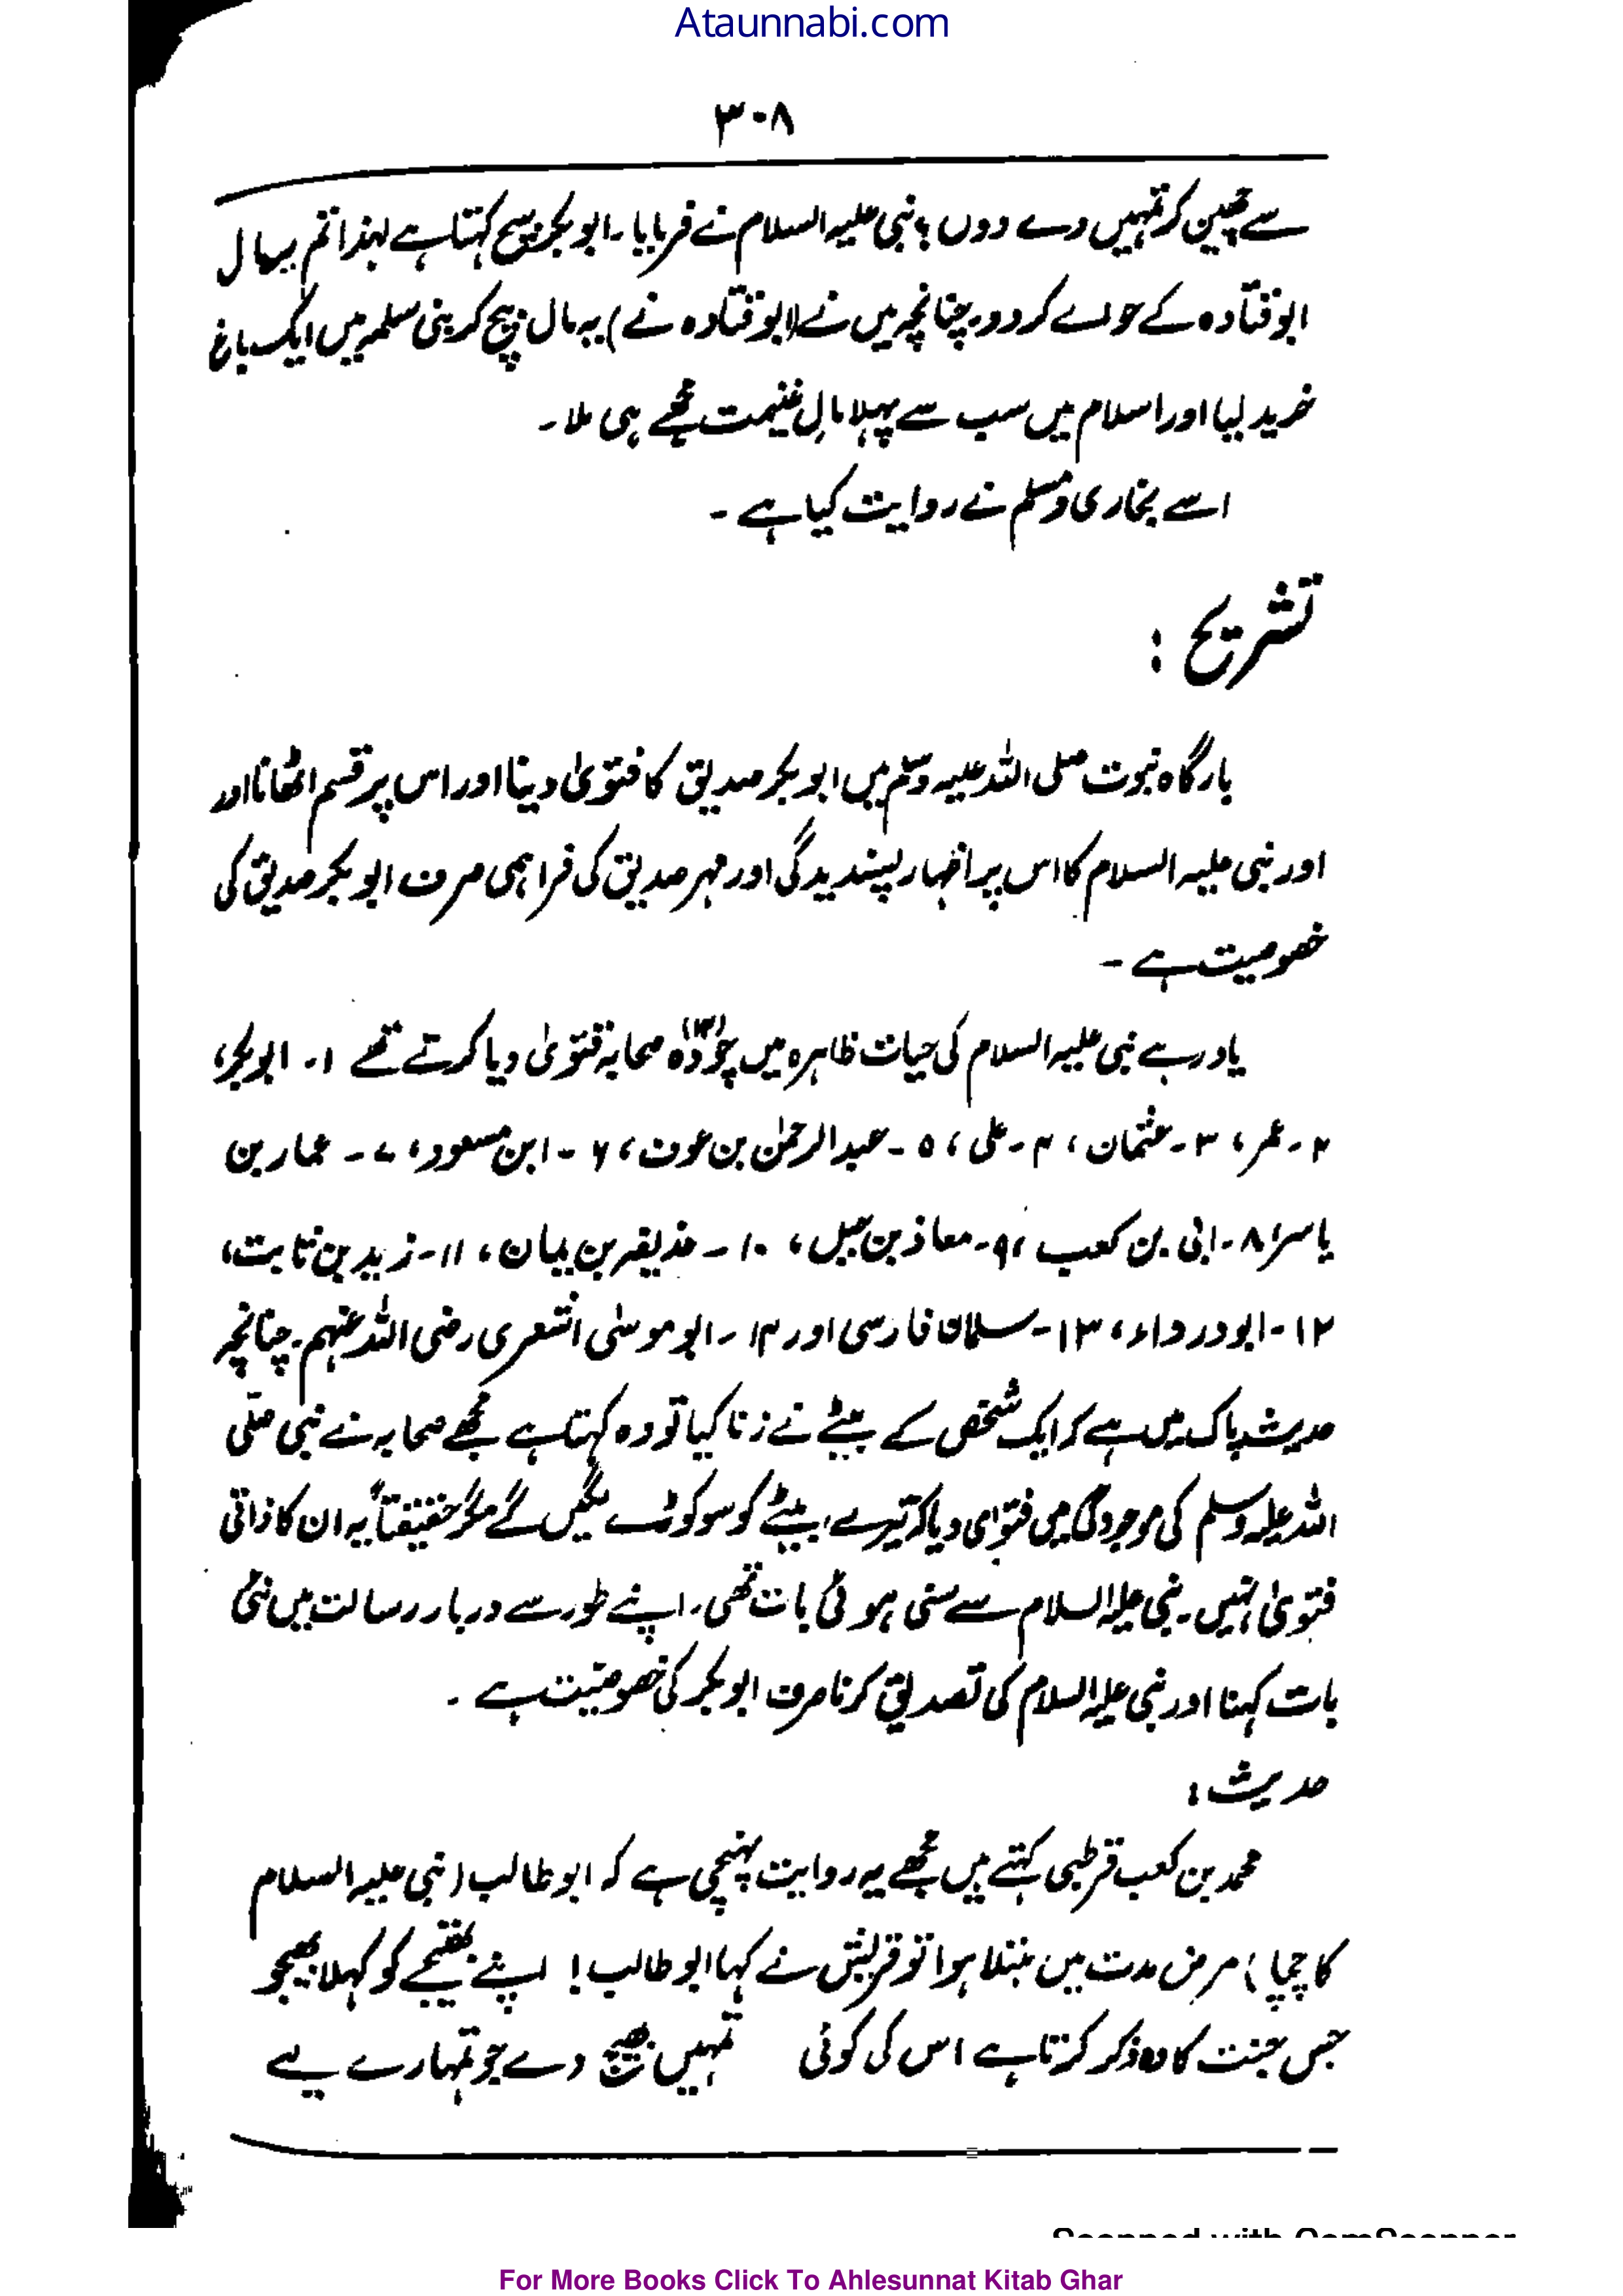 Ataunnabi.com
۳۰۸
سے چھین کر تمہیں دے دوں؟ نبی علیہ السلام نے فرمایا۔ ابوبکر سچ کہتا ہے لہذا تم یہ مال
ابوقتادہ کے حوالے کر دو۔ چنانچہ میں نے (ابوقتادہ نے) یہ مال بیچ کر بنی سلمہ میں ایک باغ
خرید لیا اور اسلام میں سب سے پہلا مالِ غنیمت مجھے ہی ملا۔
اسے بخاری و مسلم نے روایت کیا ہے۔
تشریح :
بارگاہ نبوت صلی اللہ علیہ وسلم میں ابوبکر صدیق کا فتویٰ دینا اور اس پر قسم اٹھانا اور
اور نبی علیہ السلام کا اس پر اظہار پسندیدگی اور مہر صدیق کی فراہمی صرف ابوبکر صدیق کی
خصوصیت ہے۔
یاد رہے نبی علیہ السلام کی حیات ظاہرہ میں چودہ (۱۴) صحابہ فتویٰ دیا کرتے تھے ۱۔ ابوبکر،
۲۔ عمر، ۳۔ عثمان، ۴۔ علی، ۵۔ عبدالرحمٰن بن عوف، ۶۔ ابن مسعود، ۷۔ عمار بن
یاسر، ۸۔ ابی بن کعب، ۹۔ معاذ بن جبل، ۱۰۔ حذیفہ بن یمان، ۱۱۔ زید بن ثابت،
۱۲۔ ابودرداء، ۱۳۔ سلمان فارسی اور ۱۴۔ ابو موسیٰ اشعری رضی اللہ عنہم۔ چنانچہ
حدیث پاک میں ہے کہ ایک شخص کے بیٹے نے زنا کیا تو وہ کہتا ہے مجھے صحابہ نے نبی صلّی
اللہ علیہ وسلم کی موجودگی میں فتوای دیا کہ تیرے بیٹے کو سو کوڑے لگیں گے مگر حقیقتاً یہ ان کا ذاتی
فتویٰ نہیں۔ نبی علیہ السلام سے سنی ہوئی بات تھی۔ اپنے طور سے دربار رسالت میں نئی
بات کہنا اور نبی علیہ السلام کی تصدیق کرنا صرف ابوبکر کی خصوصیّت ہے۔
حدیث :
محمد بن کعب قرظی کہتے ہیں مجھے یہ روایت پہنچی ہے کہ ابوطالب (نبی علیہ السلام
کا چچا) مرض مدت میں مبتلا ہوا تو قریش نے کہا ابوطالب! اپنے بھتیجے کو کہلا بھیجو
جس جنت کا وہ ذکر کرتا ہے اس کی کوئی تمہیں بھیج دے جو تمہارے لیے
For More Books Click To Ahlesunnat Kitab Ghar